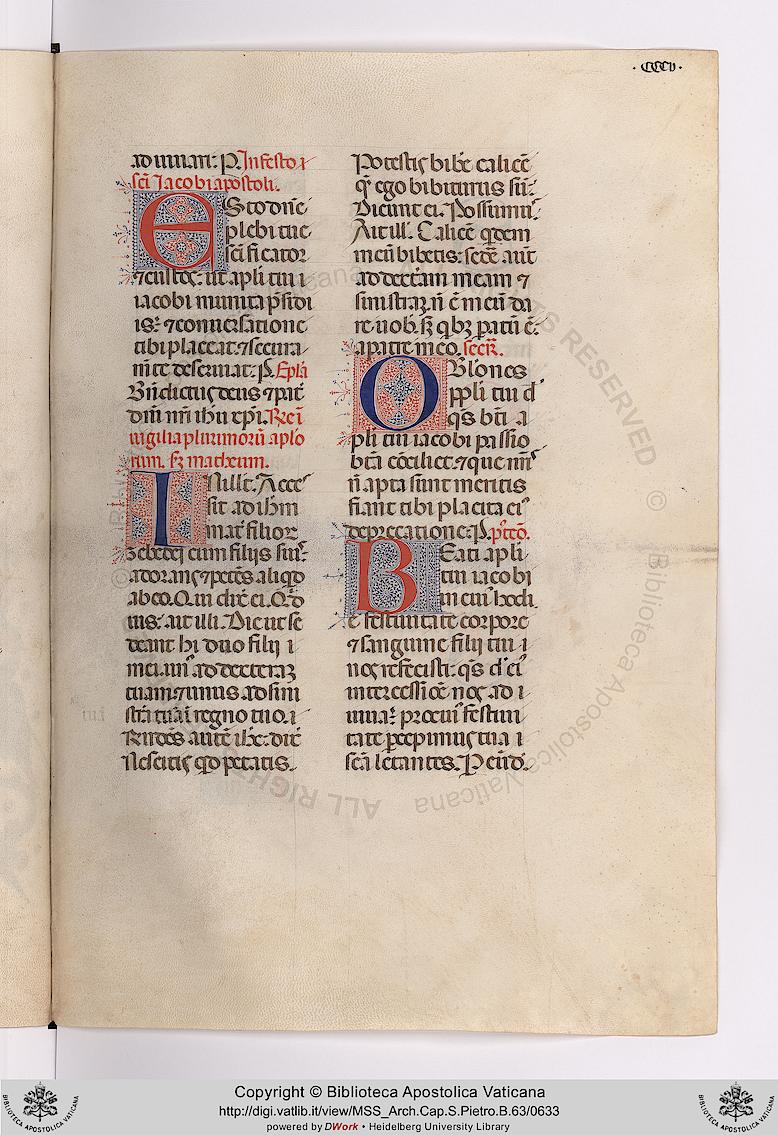 · CCCV ·
adiuuari: P. In festo
scī Iacobi apostoli.
ESto dn̄e
plebi tue
scīficator
⁊ custos: ut apl̄i tui i
iacobi munita p̄sidi
is: ⁊ conuersatione
tibi placeat: ⁊ secura
mēte deseruiat: P. Epl̄a
Bn̄dictus deus ⁊ pat̄
dn̄i nr̄i ih̄u xp̄i. Re ī
uigilia plurimorū aplo
rum. sꝫ matheum.
IN illo t. Acces
sit ad ih̄m
mat̄ filioꝝ
zebedei cum filijs suis:
adorans ⁊ petēs aliqd
ab eo. Qui dix̄ ei. Qd
uis: ait illi. Dic ut se
deant hi duo filij
mei. un̄ ad dexteraꝫ
tuam ⁊ unus ad sini
strā tuā ī regno tuo.
Rn̄dēs autē ih̄c: dix̄
Nescitis qd petatis.
Potestis bibe calicē
quē ego bibiturus sū:
Dicunt ei. Possumus
Ait ill. Calicē qdem
meū bibetis: sedē aūt
ad dextām meam ⁊
sinistraꝫ n̄ ē meū da
re uob. sꝫ qbꝫ patū ē.
a patre meo. secr̄.
OBlones
ppli tui d
qs bt̄i a
pli tui iacobi passio
btā cōciliet. ⁊ que nr̄is
n̄ apta sunt meritis
fiant tibi placita ei
deprecatione: P. p't cō.
BEati apli
tui iacobi
in cui hodi
e festiuitate corpore
⁊ sanguine filij tui
nos refecisti: qs d ei
intercessiōe nos ad i
uua: pro cui festiui
tate percepimus tua
scā letantes. P eūd.
Copyright © Biblioteca Apostolica Vaticana
http://digi.vatlib.it/view/MSS_Arch.Cap.S.Pietro.B.63/0633
powered by DWork • Heidelberg University Library
BIBLIOTECA APOSTOLICA VATICANA
BIBLIOTECA APOSTOLICA VATICANA
ALL RIGHTS RESERVED © Biblioteca Apostolica Vaticana